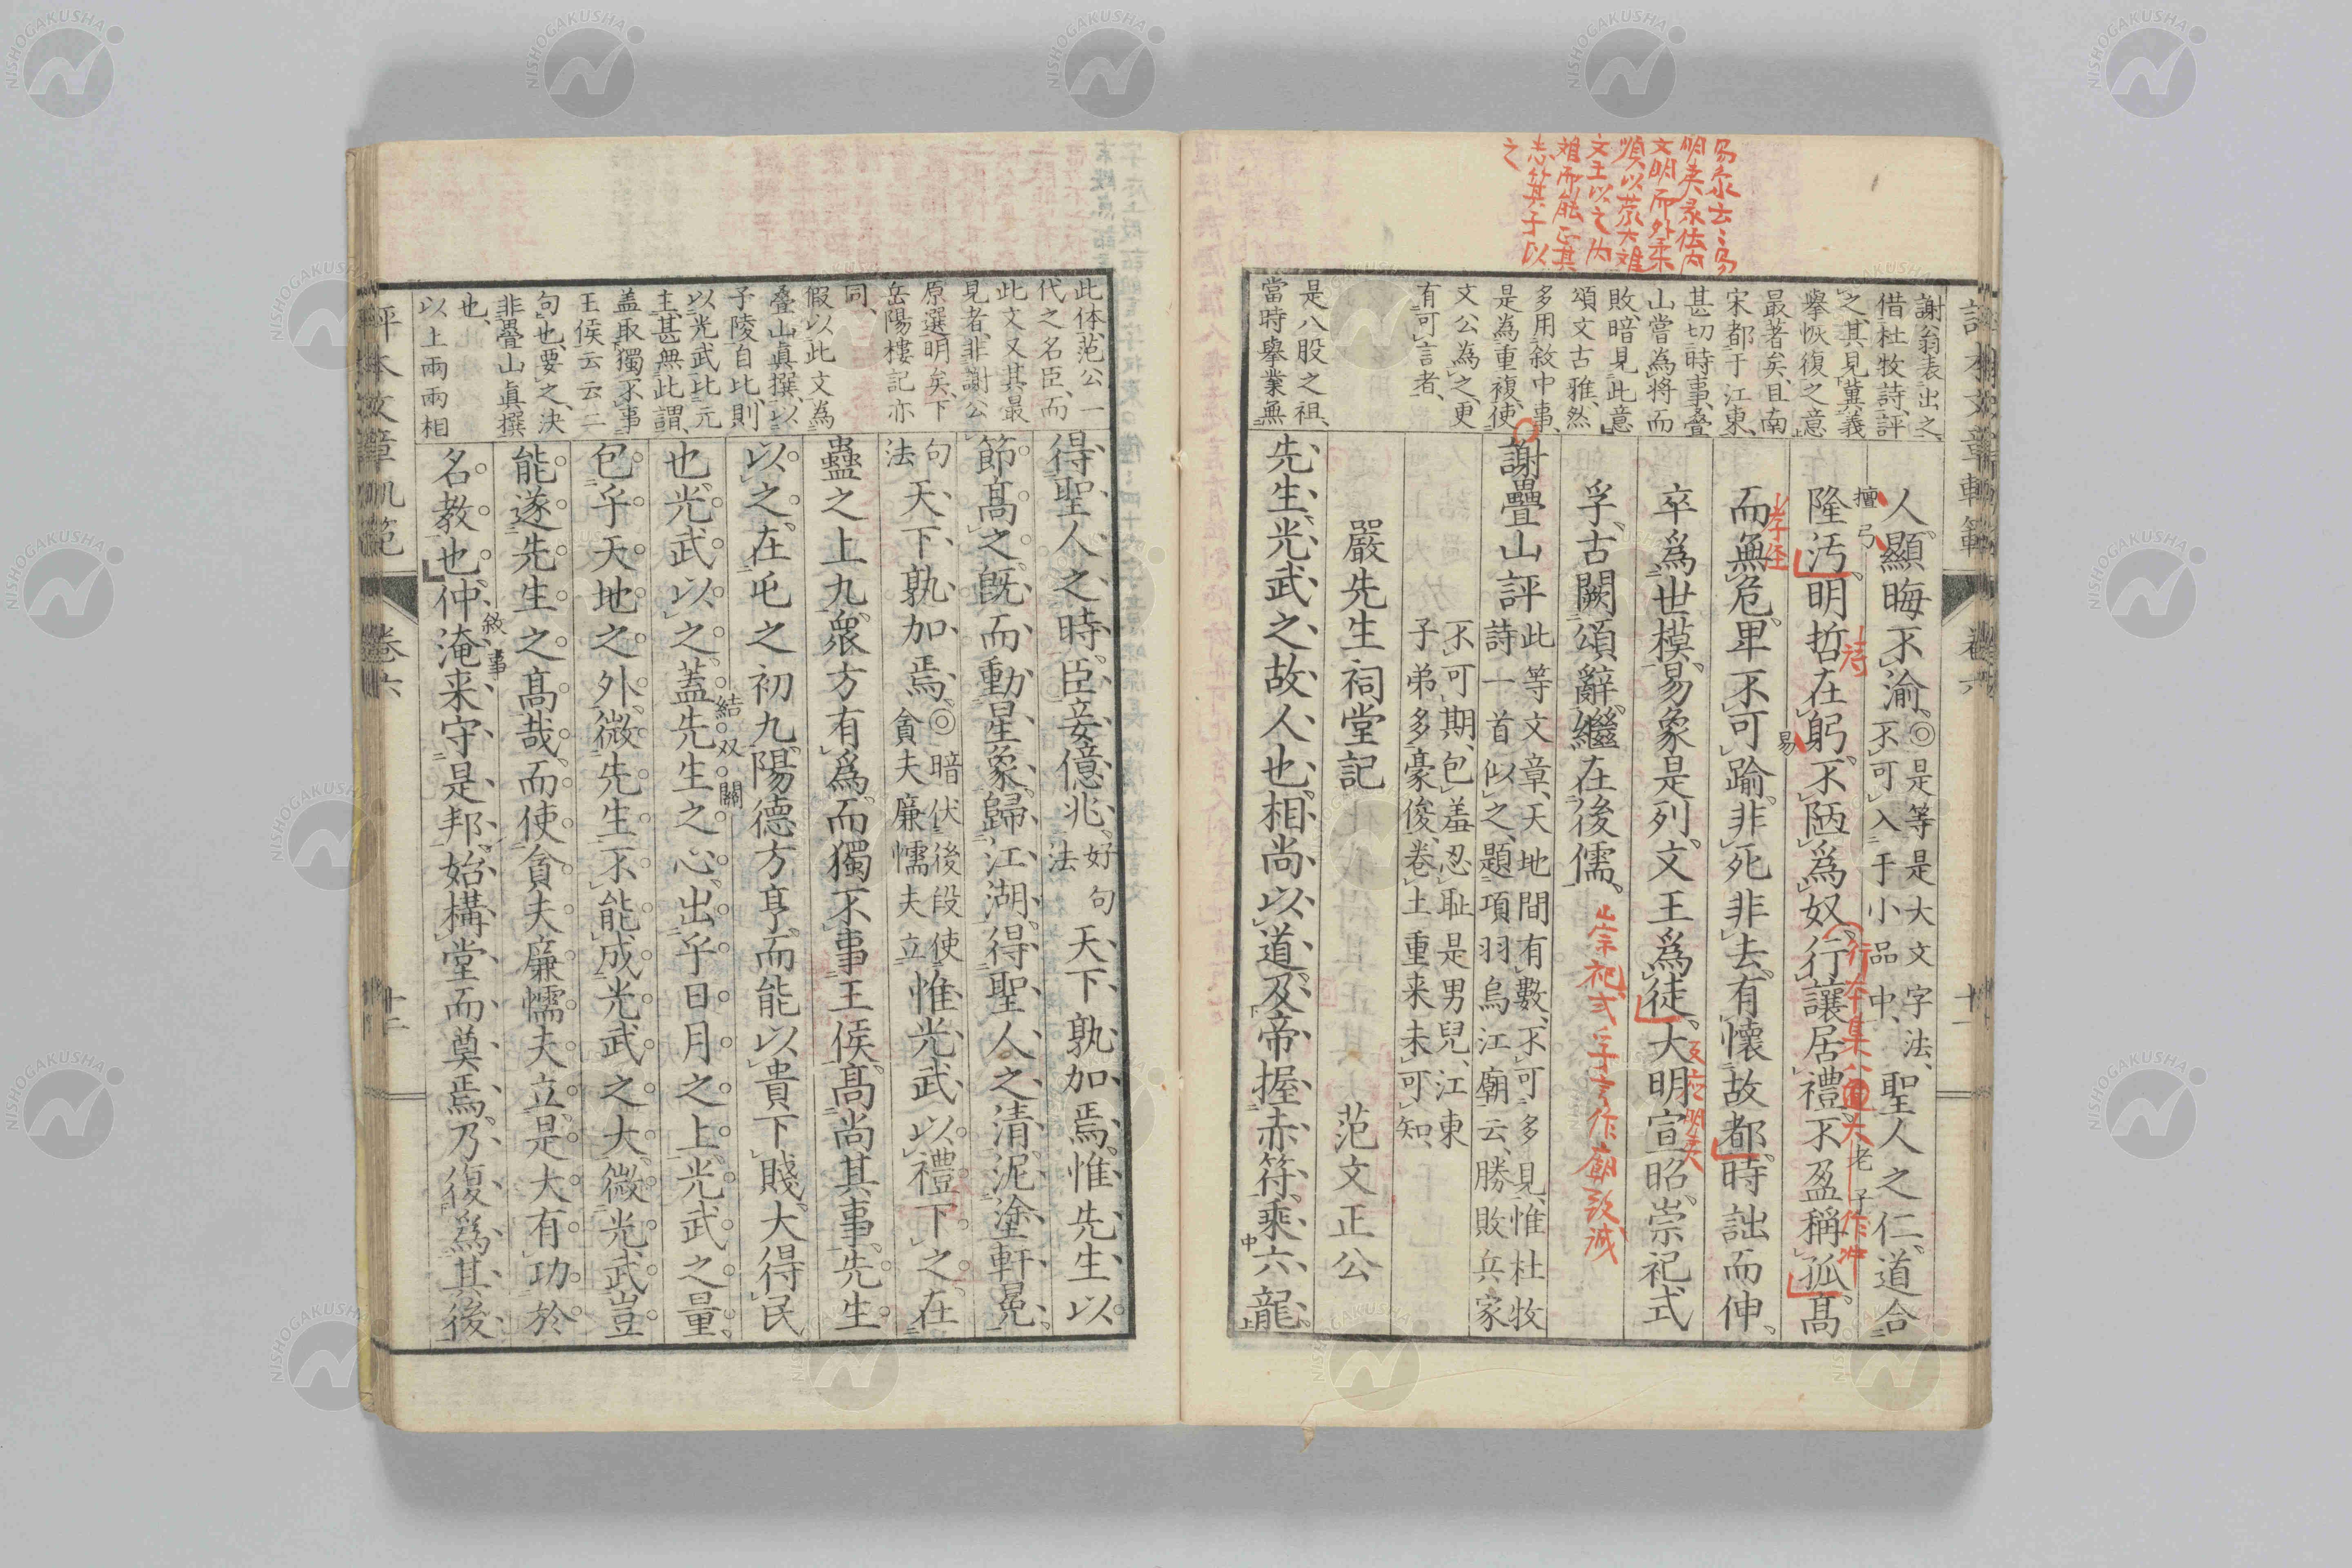 易彖云云易
明夷彖伝内
文明而外柔
順以蒙大難
文王以之内
難而能正其
志箕子以
之
謝翁表出之
借杜牧詩評
之其見冀義
擧恢復之意
最著矣且南
宋都于江東
甚切時事疊
山嘗為將而
敗暗見此意
頌文古雅然
多用敘中事
是為重複使
文公為之更
有可言者
是八股之祖
當時擧業無
人顯晦不渝◎是等是大文字法
不可入于小品中聖人之仁道合
檀弓
隆汚明哲在躬不陋爲奴行讓居禮不盈稱孤高
詩
行本集作
老子
作冲
而無危卑不可踰非死非去有懷故都時詘而伸
孝経
易
卒爲世模易象是列文王爲徒大明宣昭崇祀式
反応明夷
孚古闕頌辭繼在後儒
崇祀式孚言作廟設減
謝疊山評此等文章天地間有數不可多見惟杜牧
詩一首似之題項羽烏江廟云勝敗兵家
不可期包羞忍恥是男兒江東
子弟多豪俊卷土重来未可知
嚴先生祠堂記 范文正公
先生光武之故人也相尚以道及帝握赤符乘六龍
評本文章軌範
卷六
十一
此体范公一
代之名臣而
此文又其最
見者非謝公
原選明矣下
岳陽樓記亦
同
假以此文為
疊山眞撰以
子陵自比則
以光武比元
主甚無此謂
盖取獨不事
王侯云云二
句也要之决
非疊山眞撰
也
以上兩兩相
得聖人之時臣妾億兆好句法天下孰加焉惟先生以
節高之既而動星象歸江湖得聖人之清泥塗軒冕
句法天下孰加焉◎暗伏後段使
貪夫廉懦夫立惟光武以禮下之在
蠱之上九衆方有爲而獨不事王侯高尚其事先生
以之在屯之初九陽德方亨而能以貴下賤大得民
也光武以之蓋先生之心出乎日月之上光武之量
結双關
包乎天地之外微先生不能成光武之大微光武豈
能遂先生之高哉而使貪夫廉懦夫立是大有功於
名教也仲淹来守是邦始構堂而奠焉乃復爲其後
敘事
評本文章軌範
卷六
十二
NISHOGAKUSHA